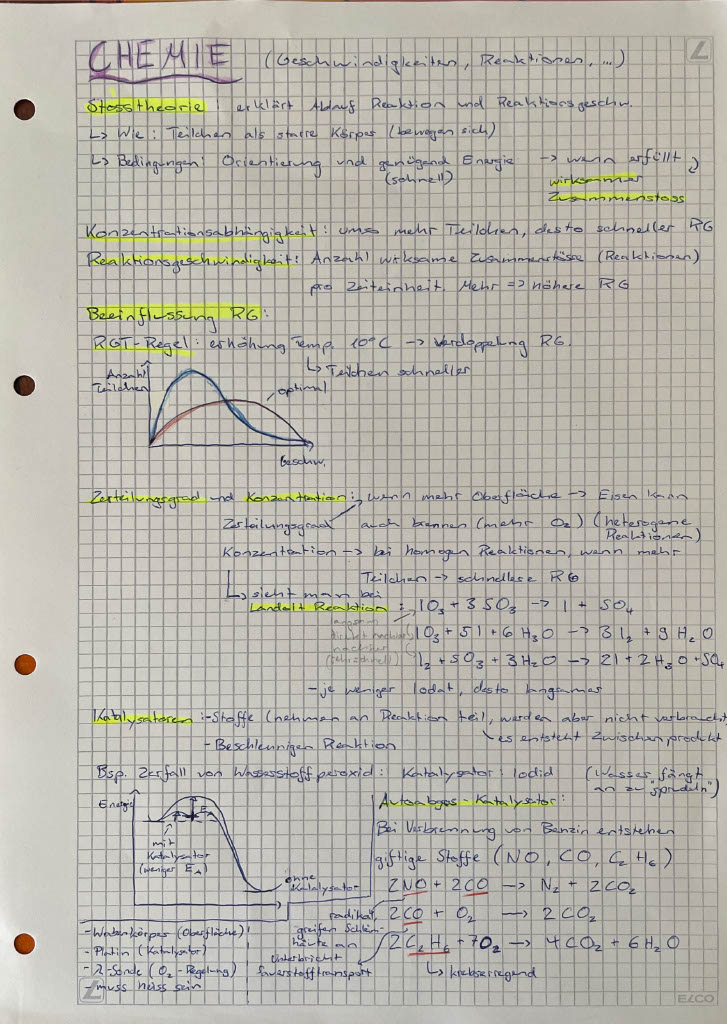 CHEMIE (Geschwindigkeiten, Reaktionen, ...)
Stosstheorie : erklärt Ablauf Reaktion und Reaktionsgeschw.
↳ Wie : Teilchen als starre Körper (bewegen sich)
↳ Bedingungen: Orientierung und genügend Energie → wenn erfüllt
(schnell)
wirksamer
Zusammenstoss
Konzentrationsabhängigkeit : umso mehr Teilchen, desto schneller RG
Reaktionsgeschwindigkeit: Anzahl wirksame Zusammenstösse (Reaktionen)
pro Zeiteinheit. Mehr => höhere RG
Beeinflussung RG:
RGT-Regel : erhöhung Temp. 10°C → Verdoppelung RG.
↳ Teilchen schneller
Anzahl
Teilchen
optimal
Geschw.
Zerteilungsgrad und Konzentration: wenn mehr Oberfläche → Eisen kann
Zerteilungsgrad auch brennen (mehr O₂) (heterogene
Reaktionen)
Konzentration → bei homogen Reaktionen, wenn mehr
Teilchen → schnellese RG
↳ sieht man bei
Landolt Reaktion : IO₃ + 3 SO₃ → I + SO₄
langsam
IO₃ + 5I + 6 H₃O → 3 I₂ + 9 H₂O
nachher
(sehr schnell)
I₂ + SO₃ + 3H₂O → 2I + 2H₃O + SO₄
- je weniger Iodat, desto langsamer
Katalysatoren : - Stoffe (nehmen an Reaktion teil, werden aber nicht verbraucht
↳ es entsteht Zwischenprodukt
- Beschleunigen Reaktion
Bsp. Zerfall von Wasserstoffperoxid : Katalysator : Iodid (Wasser "fängt
an zu "sprudeln")
Energie
E
mit
Katalysator
(weniger E_A)
ohne
Katalysator
Autoabgas-Katalysator:
Bei Verbrennung von Benzin entstehen
giftige Stoffe (NO, CO, C₂H₆)
2NO + 2CO → N₂ + 2CO₂
radikal,
greifen Schleim-
häute an
2CO + O₂ → 2CO₂
Unterbricht
Sauerstofftransport
2C₂H₆ + 7O₂ → 4CO₂ + 6H₂O
↳ krebserregend
- Wabenkörper (Oberfläche)
- Platin (Katalysator)
- λ-Sonde (O₂-Regelung)
- muss heiss sein
ELCO